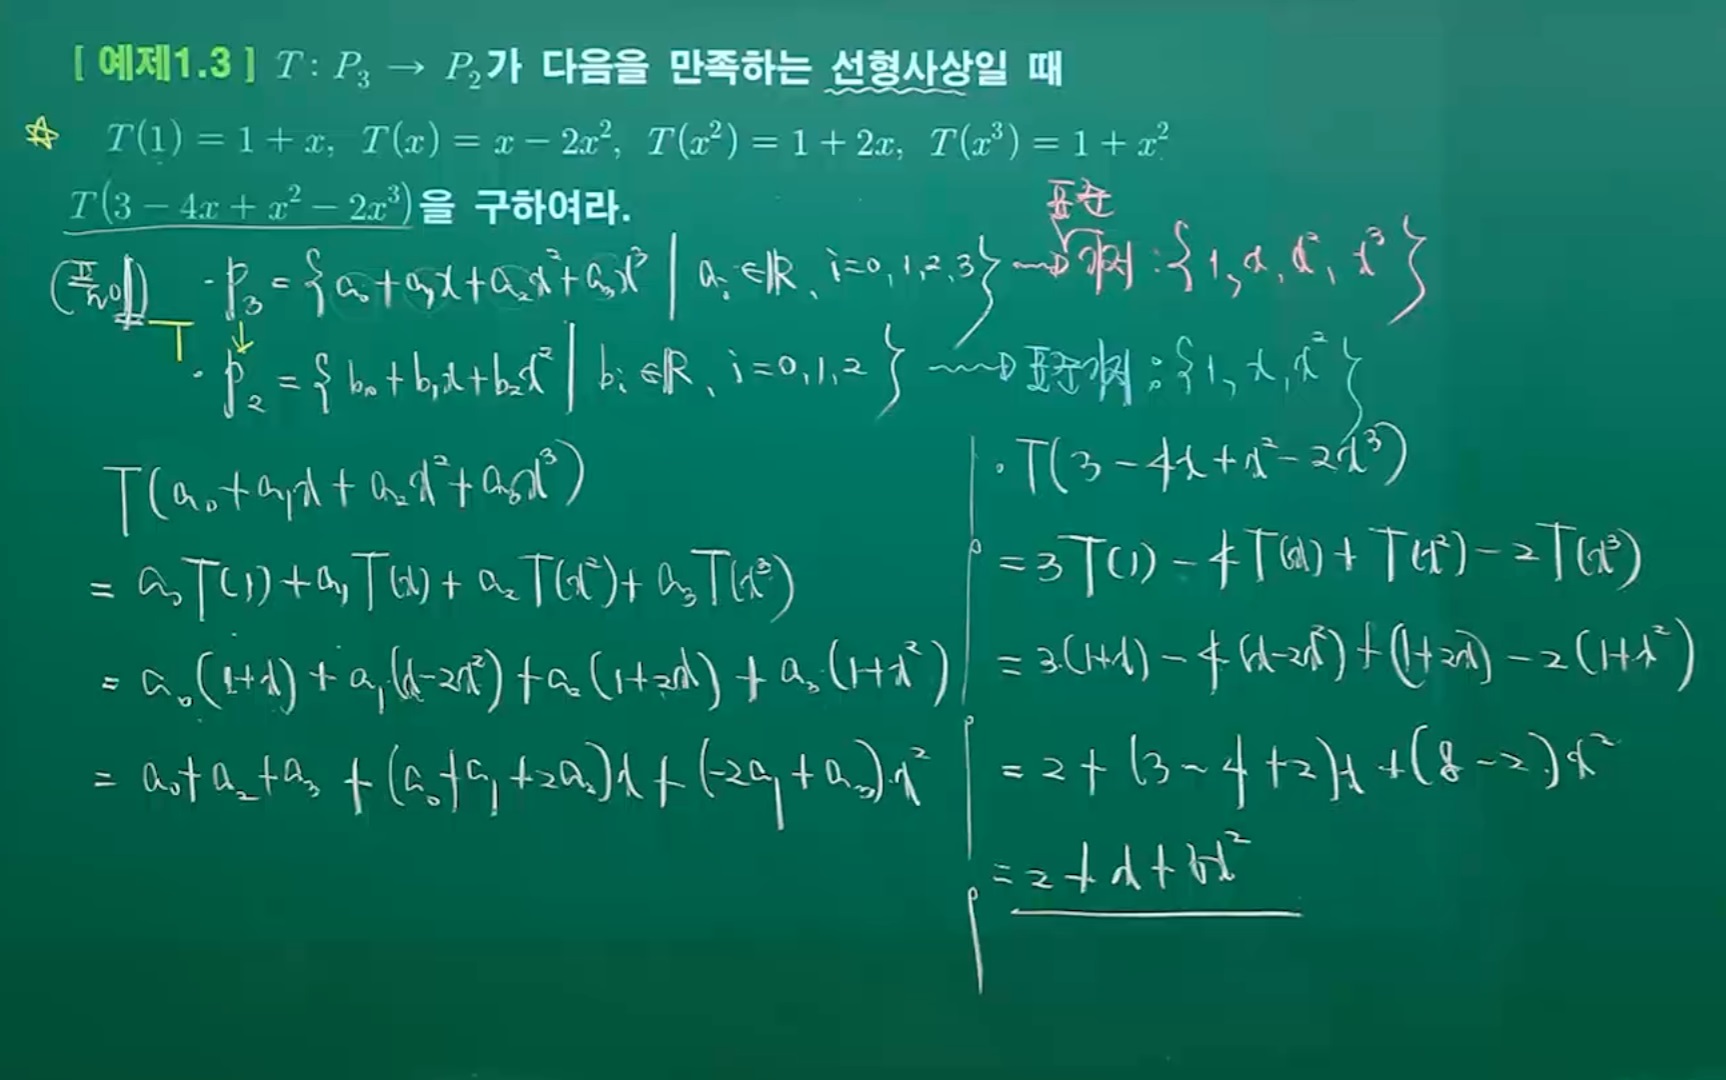 [ 예제1.3 ] T : P₃ → P₂가 다음을 만족하는 선형사상일 때
☆ T(1) = 1 + x, T(x) = x − 2x², T(x²) = 1 + 2x, T(x³) = 1 + x²
T(3 − 4x + x² − 2x³)을 구하여라.
표준
(풀이) · P₃ = { a₀ + a₁x + a₂x² + a₃x³ | aᵢ ∈ ℝ, i=0,1,2,3 } → 기저 : { 1, x, x², x³ }
T ↓
· P₂ = { b₀ + b₁x + b₂x² | bᵢ ∈ ℝ, i=0,1,2 } → 표준기저 : { 1, x, x² }
T(a₀ + a₁x + a₂x² + a₃x³)
= a₀T(1) + a₁T(x) + a₂T(x²) + a₃T(x³)
= a₀(1+x) + a₁(x−2x²) + a₂(1+2x) + a₃(1+x²)
= a₀ + a₂ + a₃ + (a₀ + a₁ + 2a₂)x + (−2a₁ + a₃)x²
· T(3 − 4x + x² − 2x³)
= 3T(1) − 4T(x) + T(x²) − 2T(x³)
= 3(1+x) − 4(x−2x²) + (1+2x) − 2(1+x²)
= 2 + (3 − 4 + 2)x + (8 − 2)x²
= 2 + x + 6x²